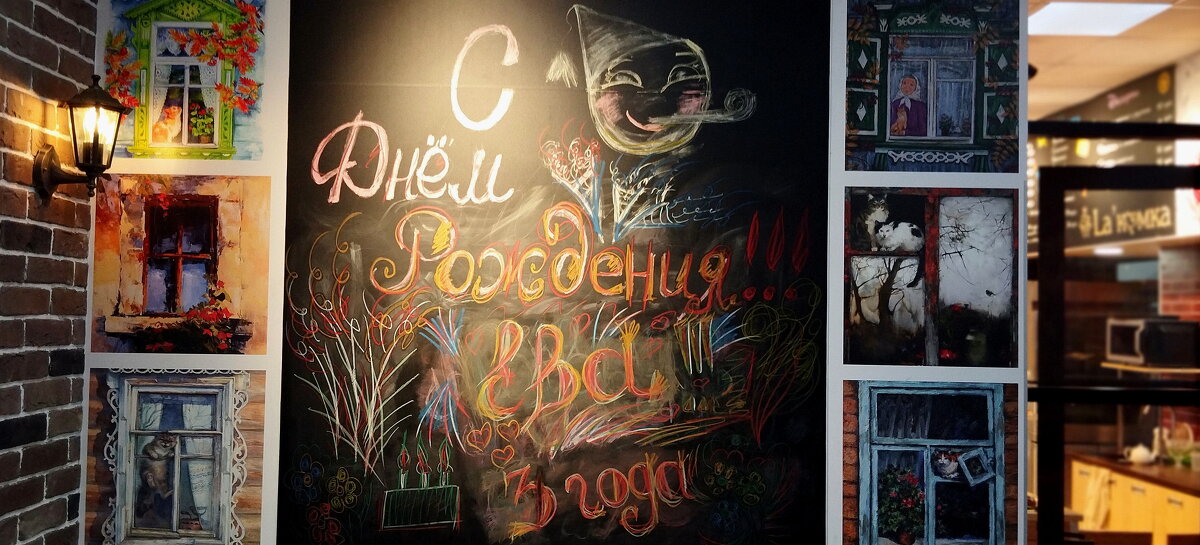 С
Днём
Рождения!!!
Ева!!!
3 года
La'кумка